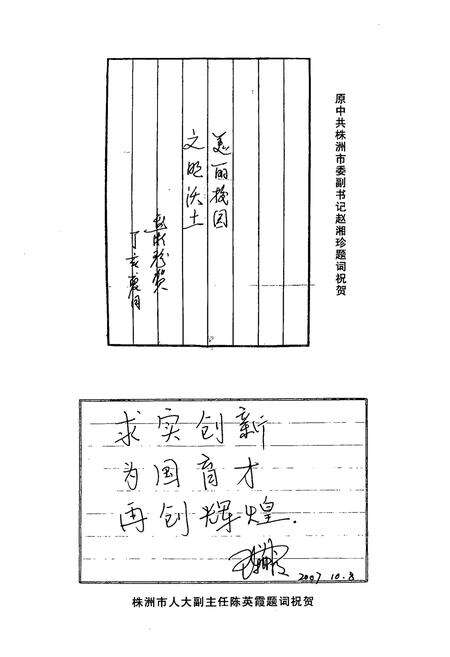 原中共株洲市委副书记赵湘珍题词祝贺
美丽校园
文明沃土
赵湘珍贺
丁亥
求实创新
为国育才
再创辉煌.
2007 10.8
株洲市人大副主任陈英霞题词祝贺